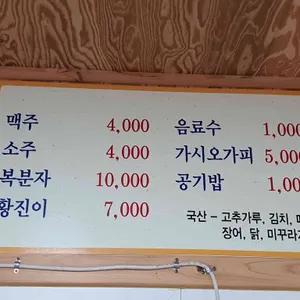 맥주 4,000 음료수 1,000
소주 4,000 가시오가피 5,000
복분자 10,000 공기밥 1,0
황진이 7,000
국산 - 고추가루, 김치,
장어, 닭, 미꾸라지